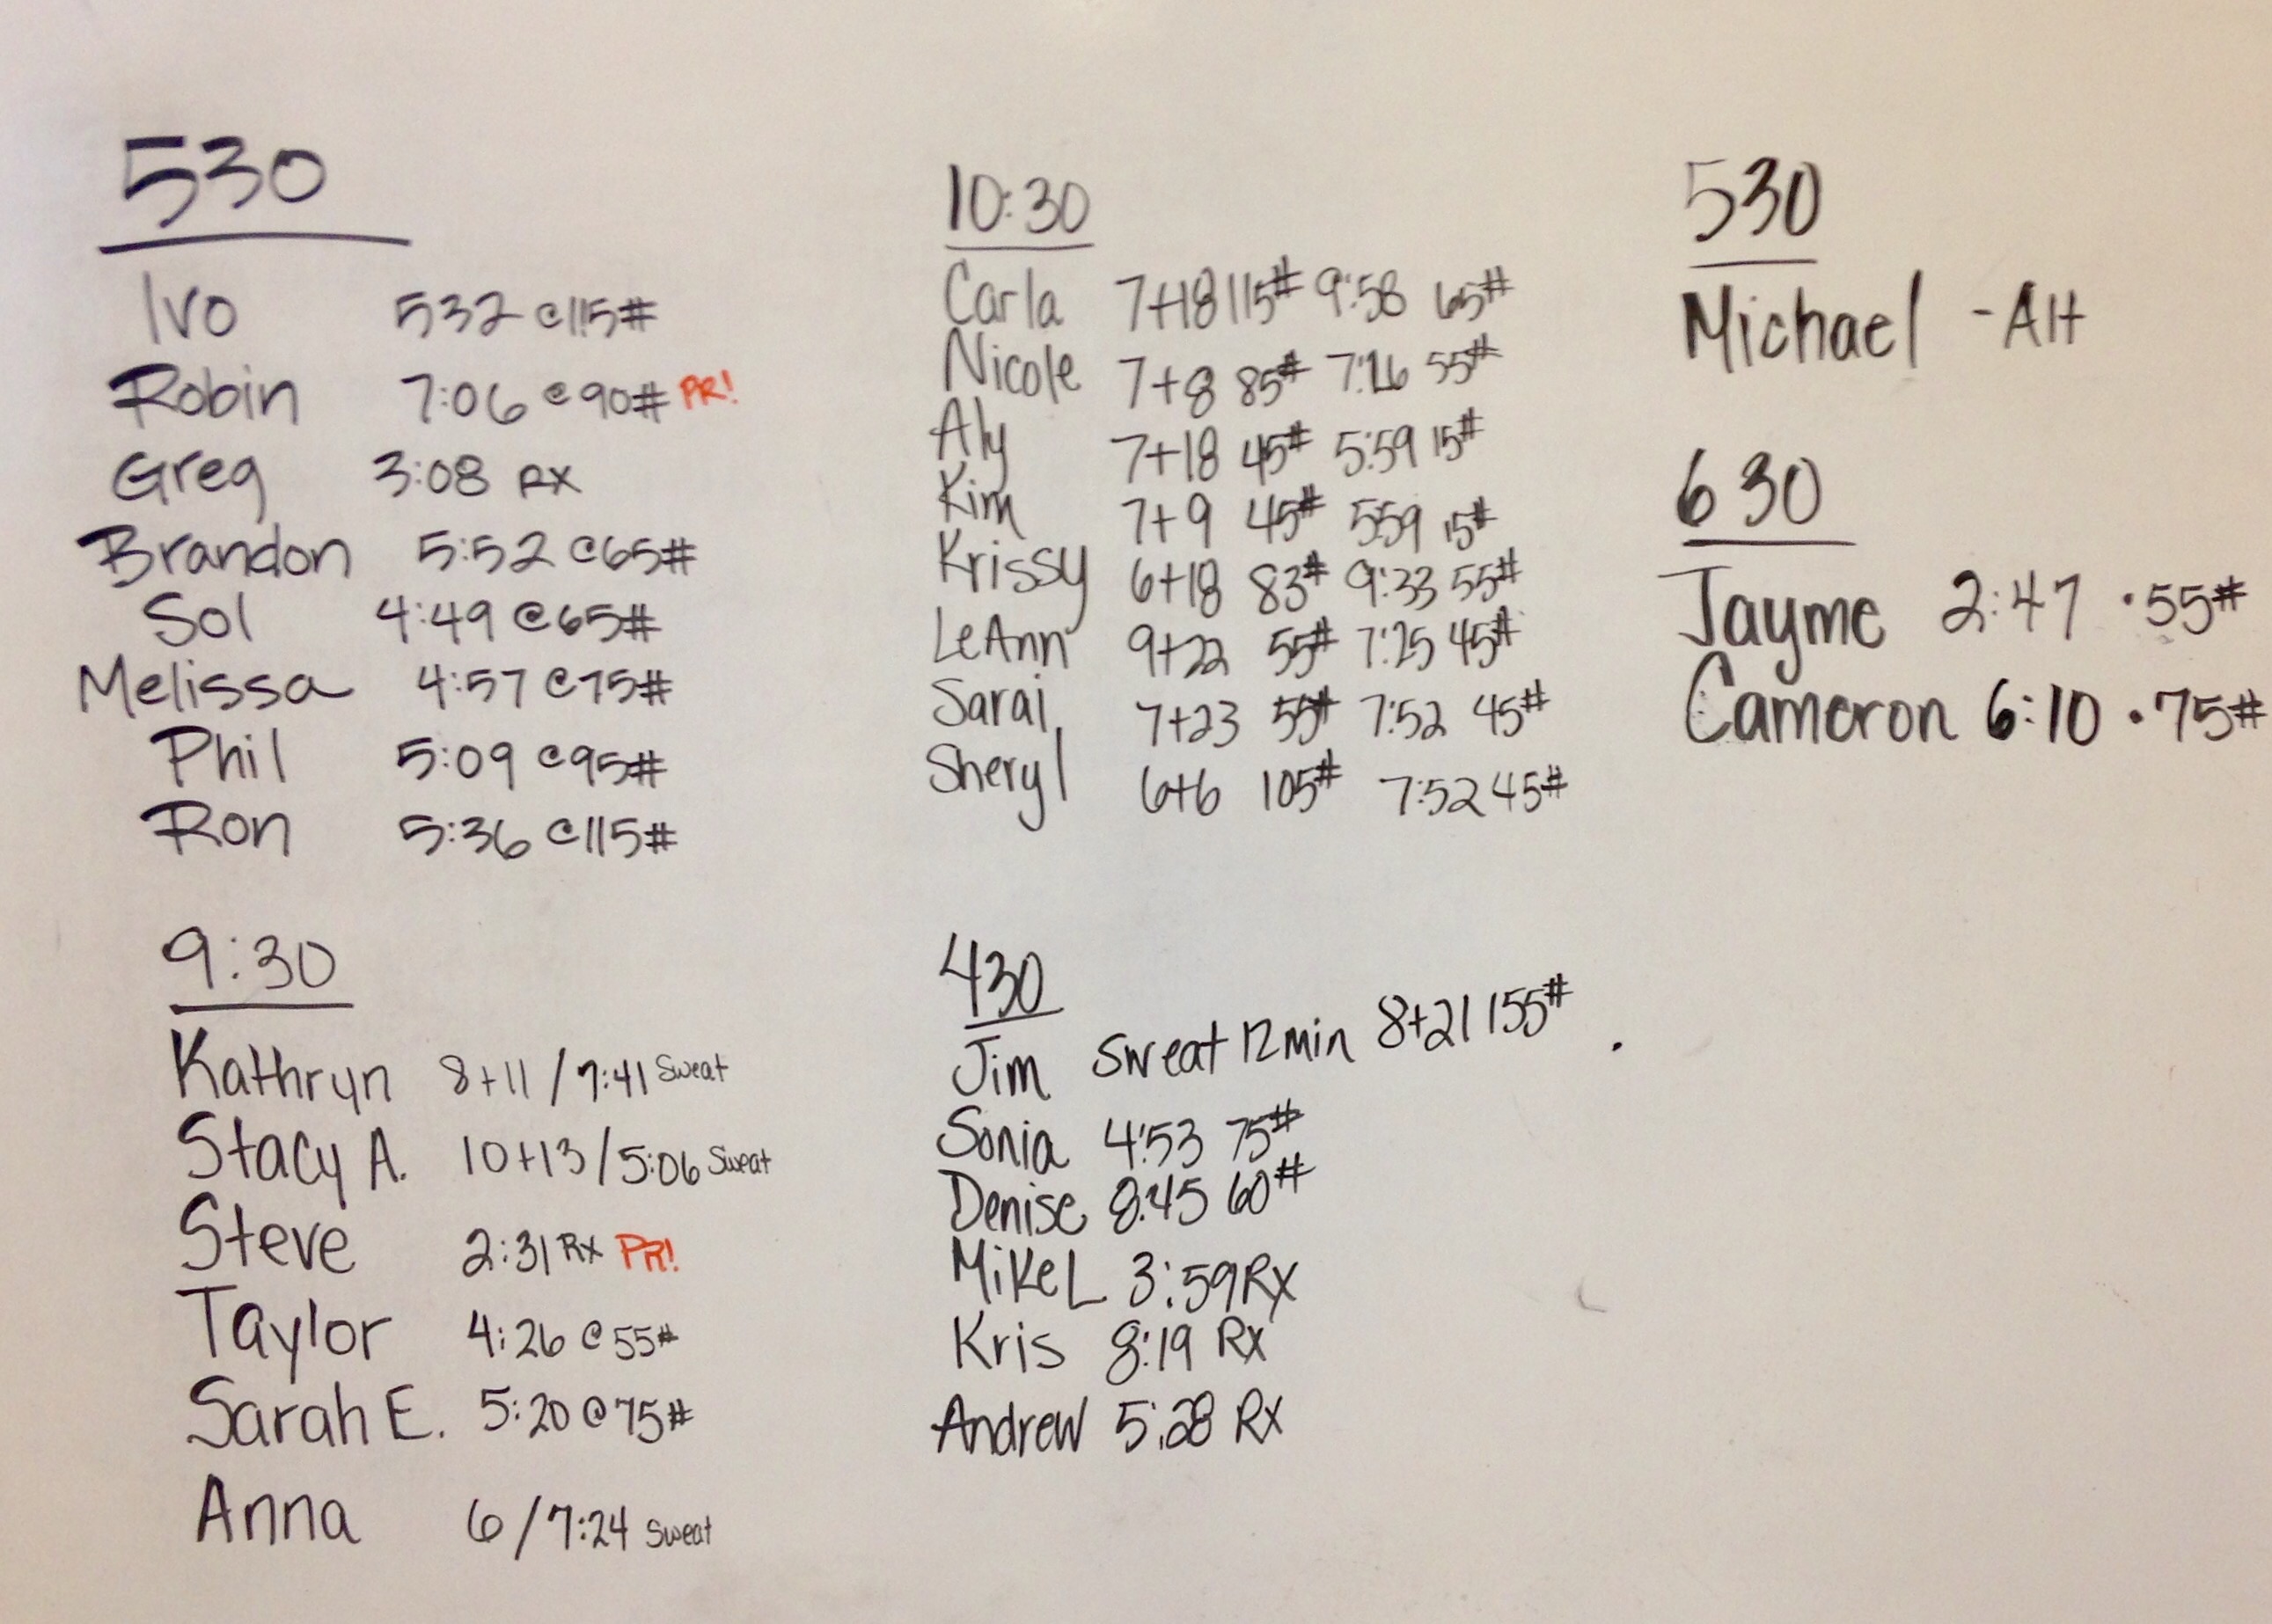 530
Ivo 532 @115#
Robin 7:06 @90# PR!
Greg 3:08 RX
Brandon 5:52 @65#
Sol 4:49 @65#
Melissa 4:57 @75#
Phil 5:09 @95#
Ron 5:36 @115#
9:30
Kathryn 8+11 / 7:41 Sweat
Stacy A. 10+13 / 5:06 Sweat
Steve 2:31 Rx PR!
Taylor 4:26 @55#
Sarah E. 5:20 @75#
Anna 6 / 7:24 Sweat
10:30
Carla 7+18 115# 9:58 65#
Nicole 7+8 85# 7:26 55#
Aly 7+18 45# 5:59 15#
Kim 7+9 45# 559 15#
Krissy 6+18 83# 9:33 55#
LeAnn 9+22 55# 7:25 45#
Sarai 7+23 55# 7:52 45#
Sheryl 6+6 105# 7:52 45#
430
Jim Sweat 12min 8+21 155#
Sonia 4:53 75#
Denise 8:45 60#
Mike L 3:59 Rx
Kris 8:19 Rx
Andrew 5:28 Rx
530
Michael -Alt
630
Jayme 2:47 · 55#
Cameron 6:10 · 75#